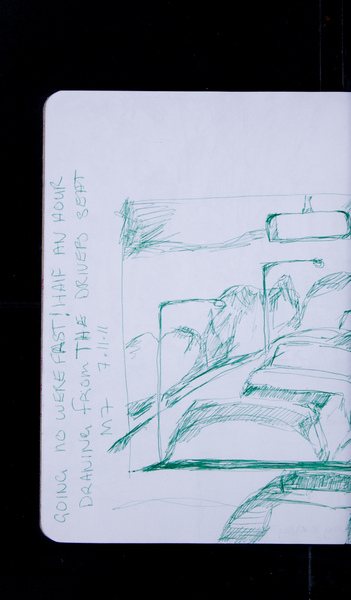 GOING NO WERE FAST! HALF AN HOUR
DRAWING FROM THE DRIVERS SEAT
M7 7-11-11